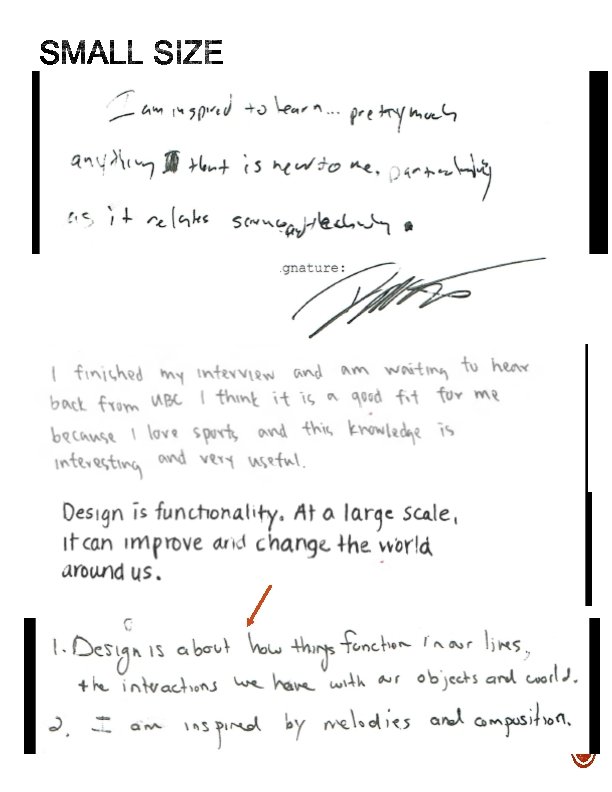 SMALL SIZE
I am inspired to learn... pretty much
anything that is new to me. particularly
as it relates science and technology.
gnature:
I finished my interview and am waiting to hear
back from UBC I think it is a good fit for me
because I love sports and this knowledge is
interesting and very useful.
Design is functionality. At a large scale,
it can improve and change the world
around us.
1. Design is about how things function in our lives,
the interactions we have with our objects and world.
2. I am inspired by melodies and composition.